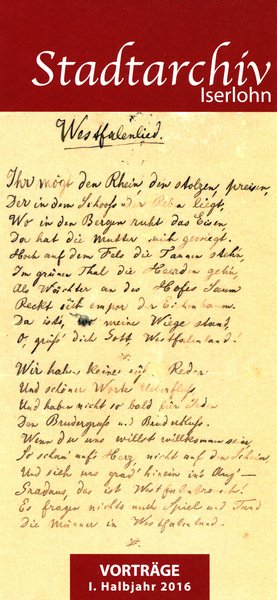 Stadtarchiv
Iserlohn
Westfalenlied.
Ihr mögt den Rhein den stolzen, preisen,
Der in dem Schooß der Reben liegt,
Wo in den Bergen ruht das Eisen,
Da hat die Mutter mich gewiegt.
Hoch auf dem Fels die Tannen stehn,
Im grünen Thal die Heerden gehn,
Als Wächter an des Hofes Saum
Reckt sich empor der Eichenbaum.
Da ists, wo meine Wiege stand,
O, grüß' dich Gott, Westfalenland.
Wir haben keines süße Reden
Und schöner Worte Ueberfluß
Und haben nicht so bald für Jeden
Den Brudergruß und Bruderkuß.
Wenn du uns willst willkommen sein,
So schau aufs Herz, nicht auf den Schein,
Und sieh uns grad' hinein in's Aug'—
Gradaus, das ist Westfalenbrauch!
Es fragen nichts nach Spiel und Tand
Die Männer in Westfalenland.
VORTRÄGE
I. Halbjahr 2016